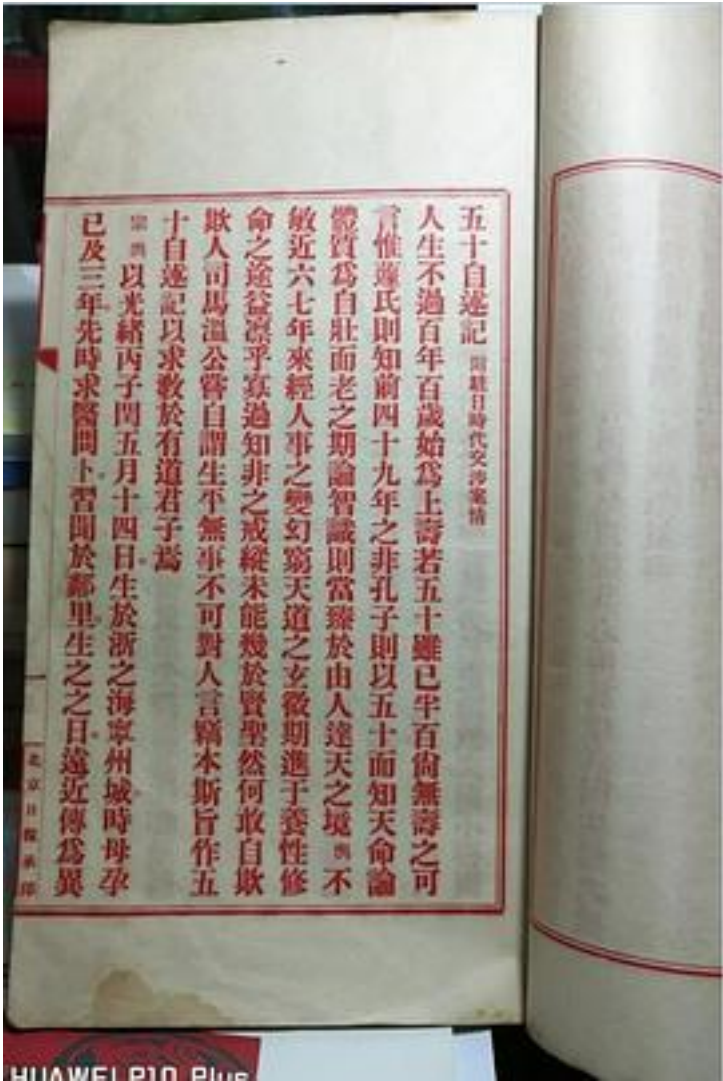 五十自述記 附駐日時代交涉案情
人生不過百年百歲始爲上壽若五十雖已半百尙無壽之可
言惟蘧氏則知前四十九年之非孔子則以五十而知天命論
體質爲自壯而老之期論智識則當臻於由人達天之境輿不
敏近六七年來經人事之變幻窮天道之玄微期進于養性修
命之途益凛乎寡過知非之戒縱未能幾於賢聖然何敢自欺
欺人司馬溫公嘗自謂生平無事不可對人言竊本斯旨作五
十自述記以求敎於有道君子焉
宗輿以光緖丙子閏五月十四日生於浙之海寧州城時母孕
已及三年先時求醫問卜習聞於鄰里生之之日遠近傳爲異
一
北京日報承印
HUAWEI P10 Plus